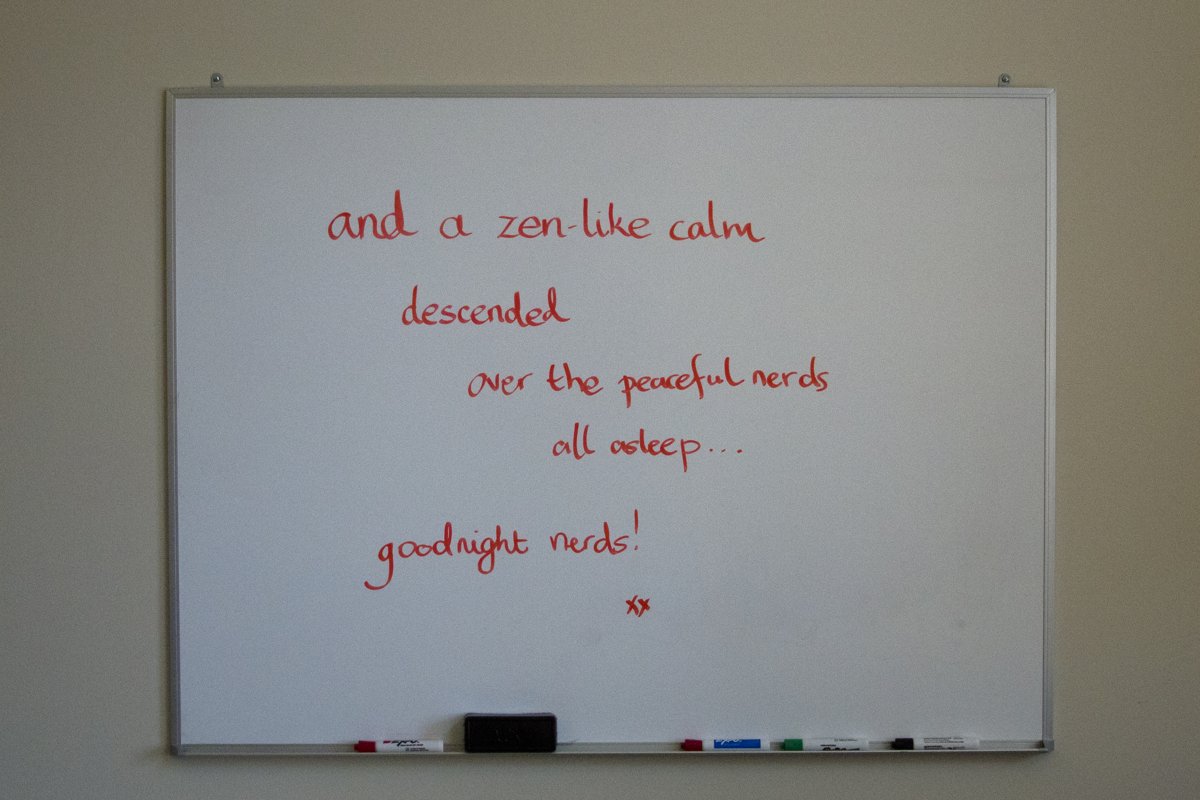 and a zen-like calm
descended
over the peaceful nerds
all asleep...
goodnight nerds!
xx